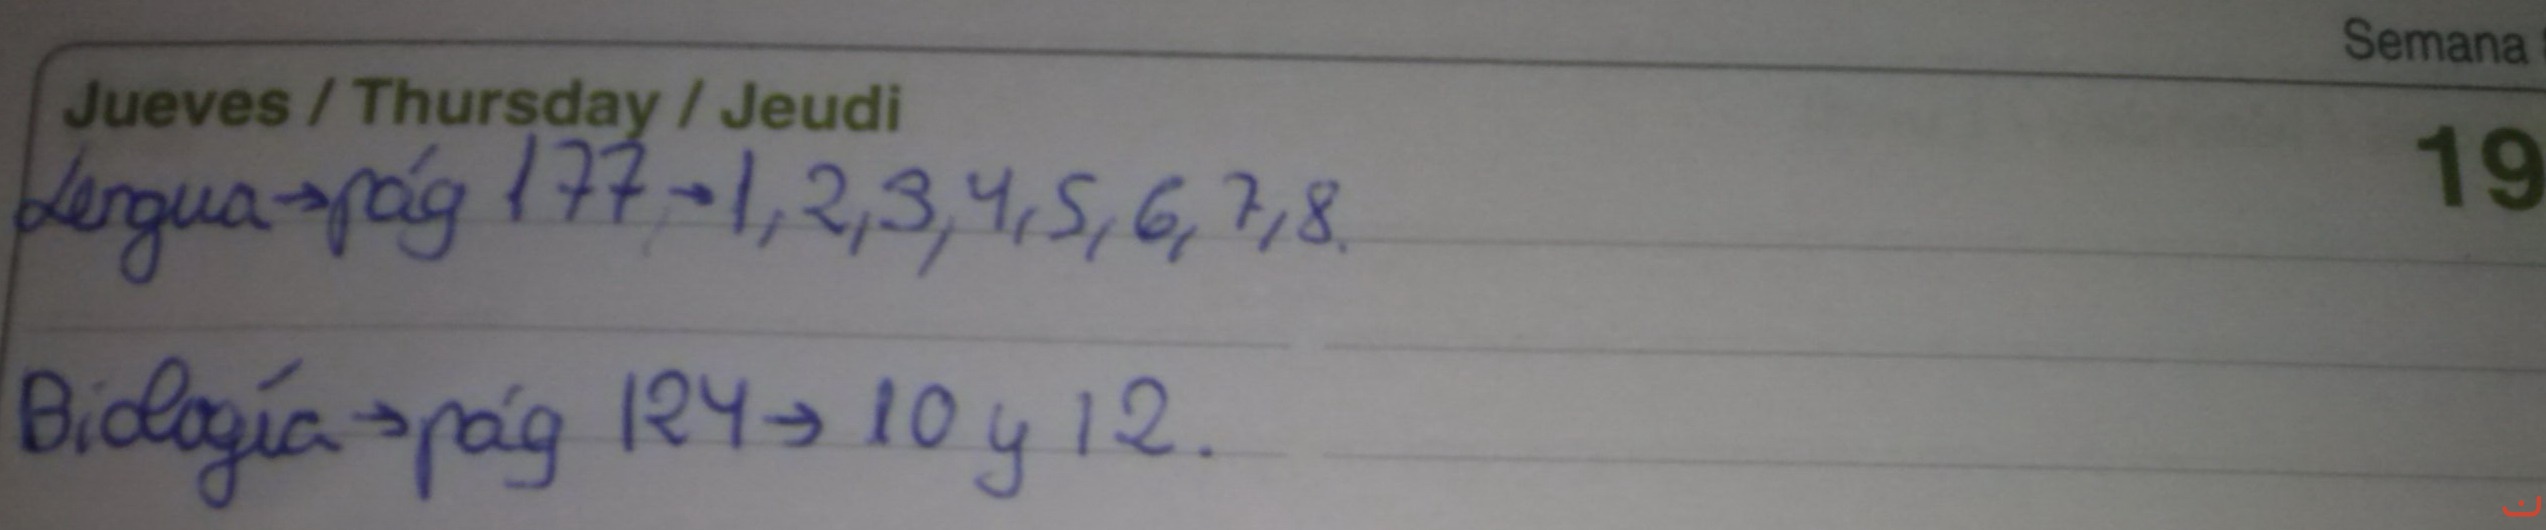 Semana
Jueves / Thursday / Jeudi
19
Lengua→pág 177→1, 2, 3, 4, 5, 6, 7, 8.
Biología→pág 124→ 10 y 12.